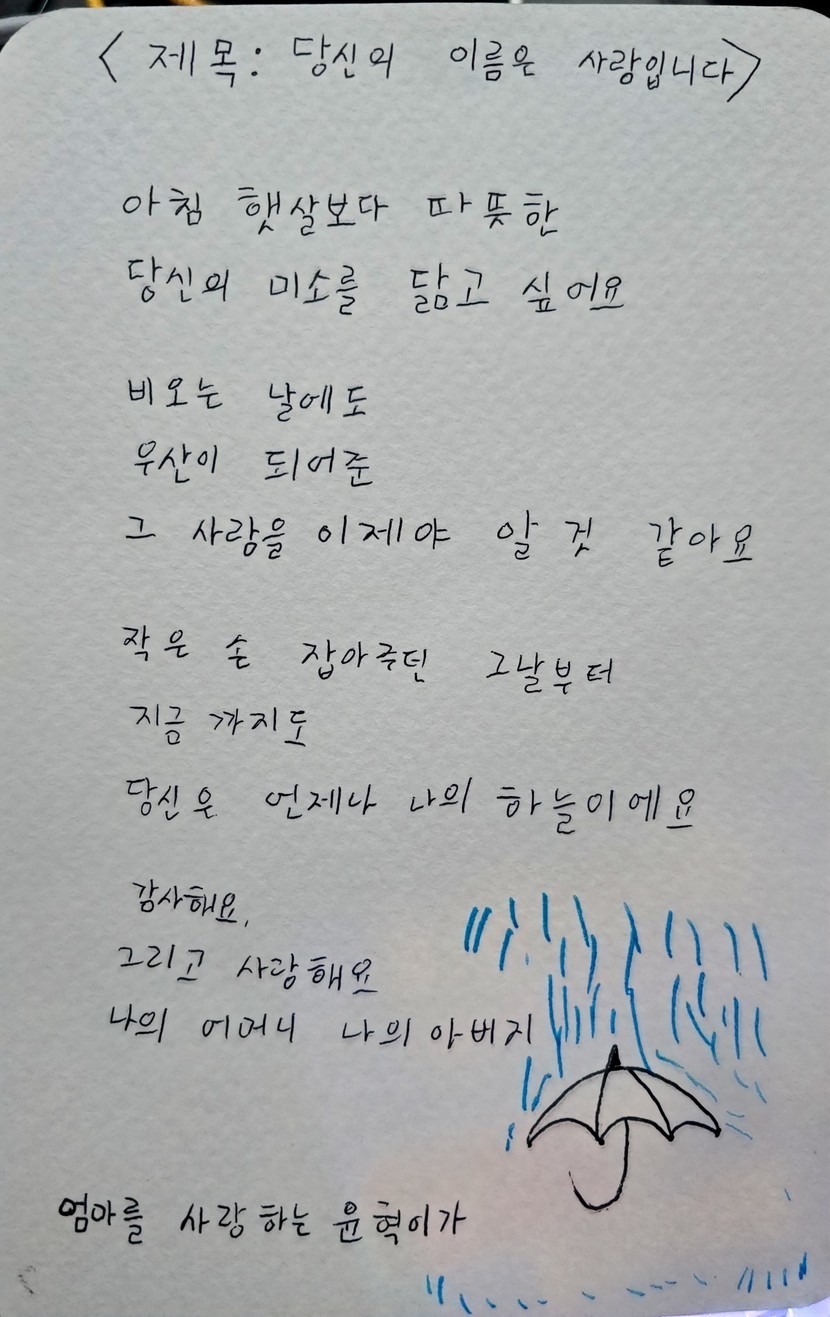 <제목: 당신의 이름은 사랑입니다>
아침 햇살보다 따뜻한
당신의 미소를 닮고 싶어요
비오는 날에도
우산이 되어준
그 사랑을 이제야 알 것 같아요
작은 손 잡아주던 그날부터
지금 까지도
당신은 언제나 나의 하늘이에요
감사해요,
그리고 사랑해요
나의 어머니 나의 아버지
엄마를 사랑하는 윤혁이가